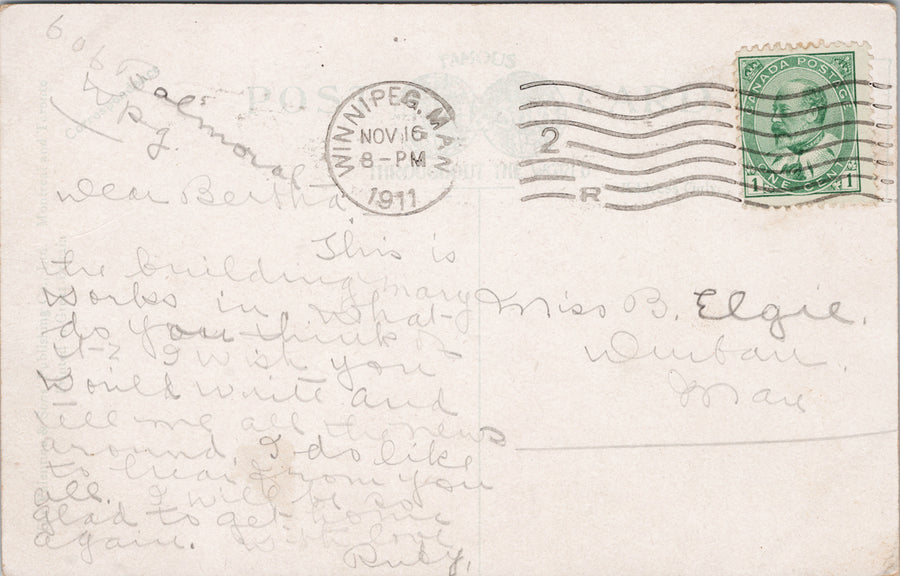 606 Balmoral
Wpg.
WINNIPEG, MAN
NOV 16
8-PM
1911
2
R
CANADA POSTAGE
1 ONE CENT 1
FAMOUS
POST CARD
THROUGHOUT THE WORLD
Dear Bertha
This is
the building mary
works in. What
do you think of
it? I wish you
would write and
tell me all the news
around I do like
to hear from you
all. I will be so
glad to get home
again. With love
Ruby.
Miss B. Elgie.
Durban
Man